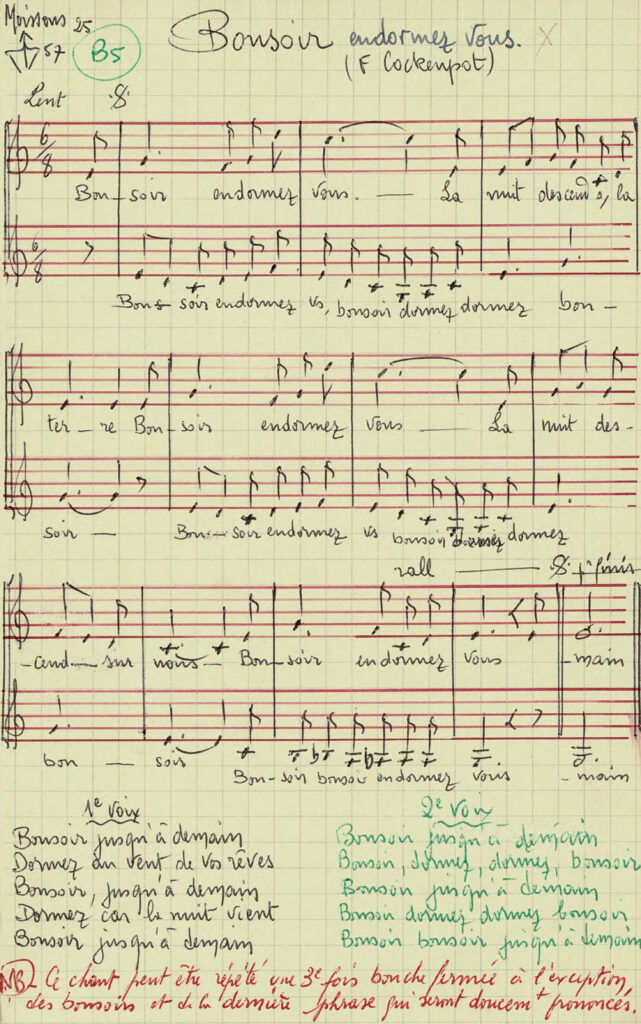 Moissons 25
57 B5
Bonsoir endormez vous. X
(F Cockenpot)
Lent
6/8 Bon-soir endormez vous. — La nuit descend, la
6/8 Bon-soir endormez vs, bonsoir dormez dormez bon-
ter-re Bon-soir endormez vous — La nuit des-
soir — Bon-soir endormez vs bonsoir dormez dormez
rall — + finir
-cend — sur nous — Bon-soir endormez vous -main
bon — soir Bon-soir bonsoir endormez vous -main
1e voix
Bonsoir jusqu'à demain
Dormez au vent de vos rêves
Bonsoir, jusqu'à demain
Dormez car la nuit vient
Bonsoir jusqu'à demain
2e voix
Bonsoir jusqu'à demain
Bonsoir, dormez, dormez, bonsoir
Bonsoir jusqu'à demain
Bonsoir dormez dormez bonsoir
Bonsoir bonsoir jusqu'à demain
NB - Ce chant peut être répété une 3e fois bouche fermée à l'exception
des bonsoirs et de la dernière phrase qui seront doucemt prononcés.